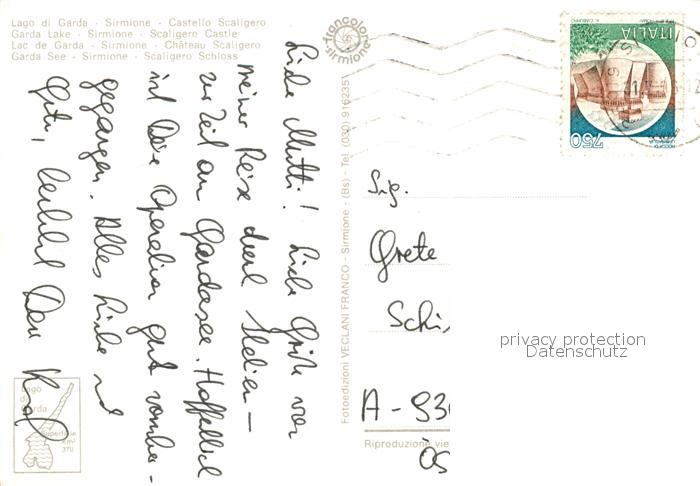 Lago di Garda - Sirmione - Castello Scaligero
Garda Lake - Sirmione - Scaligero Castle
Lac de Garda - Sirmione - Château Scaligero
Garda See - Sirmione - Scaligero Schloss
Liebe Mutti! Liebe Grüße von
meiner Reise durch Italien –
zur Zeit am Gardasee. Hoffentlich
ist Deine Operation gut vorüber-
gegangen. Alles Liebe und
Gute, herzlichst Dein
Lago
di
Garda
Superficie
Km²
370
francolor
sirmione
Fotoedizioni VECLANI FRANCO - Sirmione - (Bs) - Tel. (030) 916235
ITALIA
750
Sig.
Grete
Schi
A - 930
ÖS
Riproduzione vie
privacy protection
Datenschutz